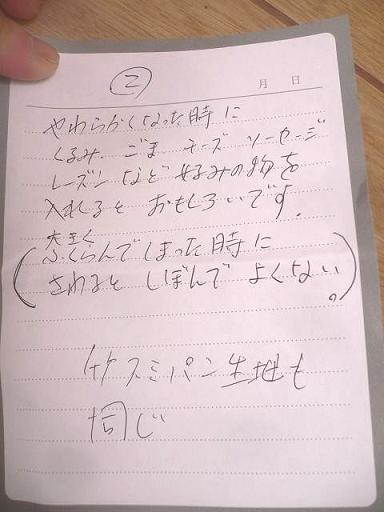 ②
月 日
やわらかくなった時に
くるみ、ごま チーズ ソーセージ
レーズン など 好みの物を
入れると おもしろいです。
大きく
(ふくらんでしまった時に
さわると しぼんで よくない。)
竹スミパン生地も
同じ